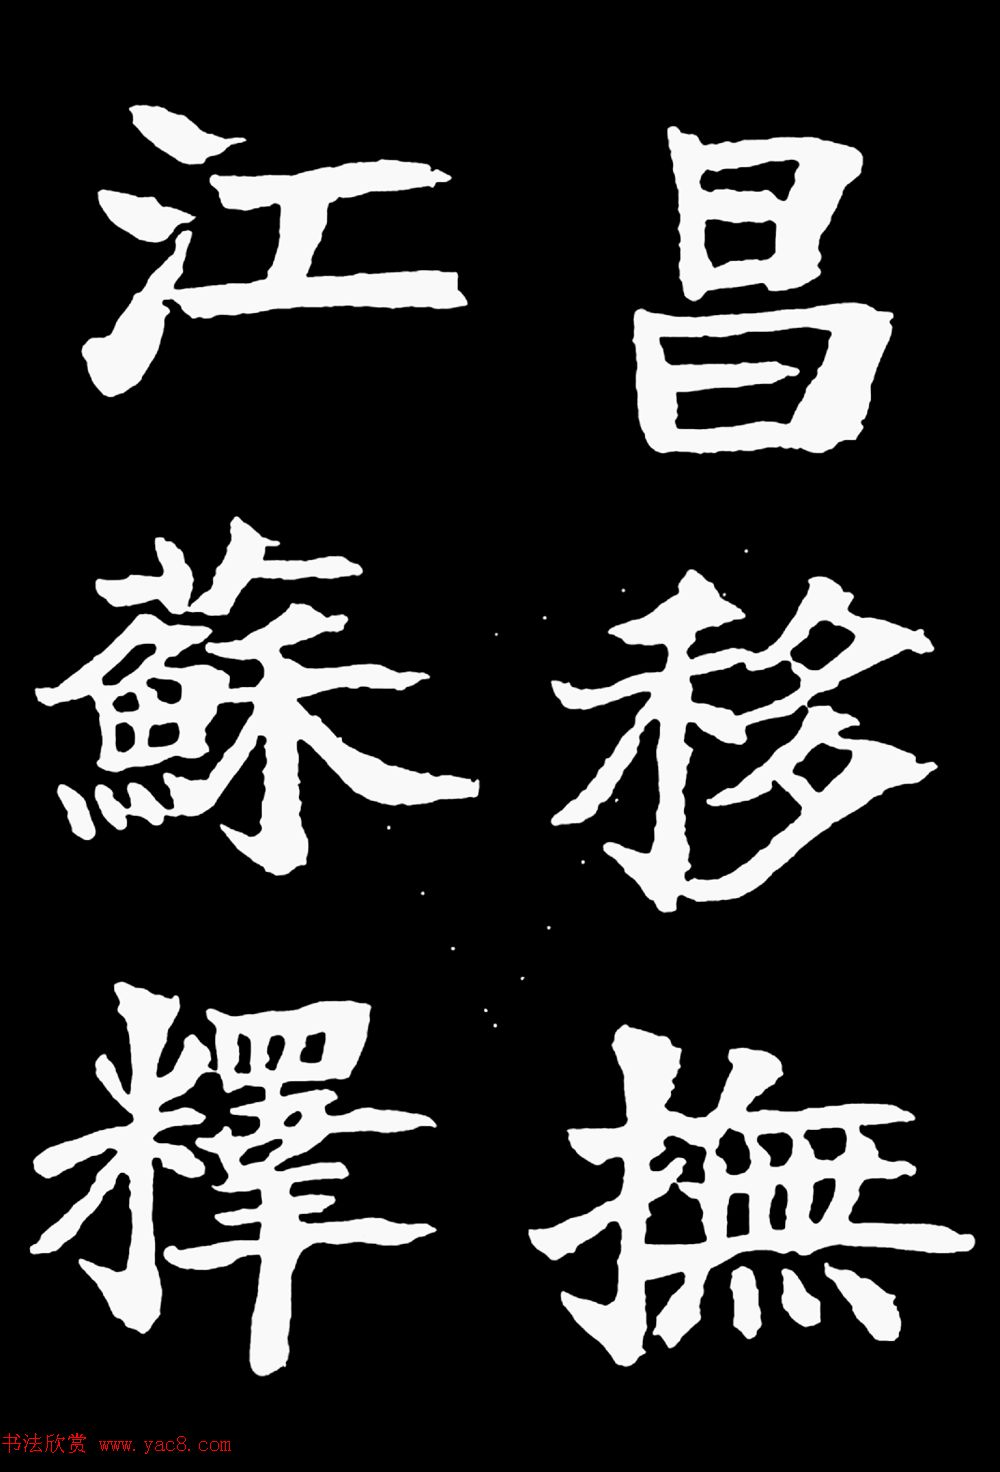 昌移撫
江蘇釋
书法欣赏 www.yac8.com